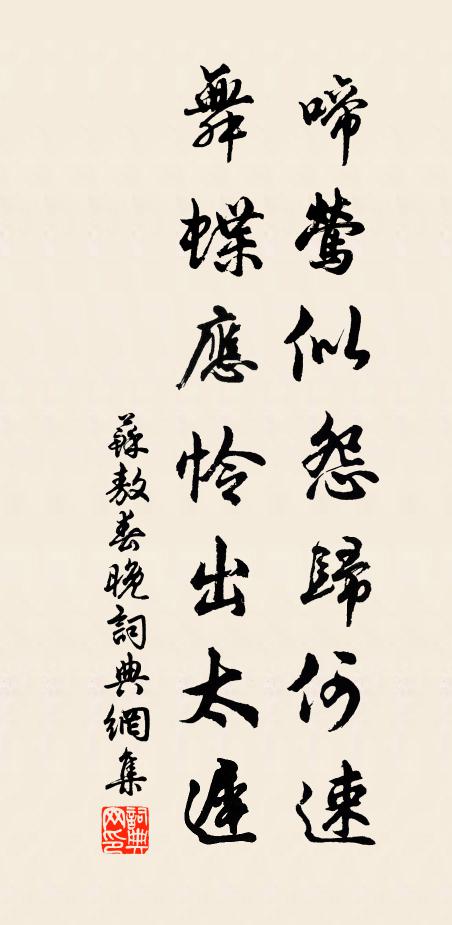 啼鶯似怨歸何速
舞蝶應憐出太遲
蘇敖春晚詞典網集
詞典網印